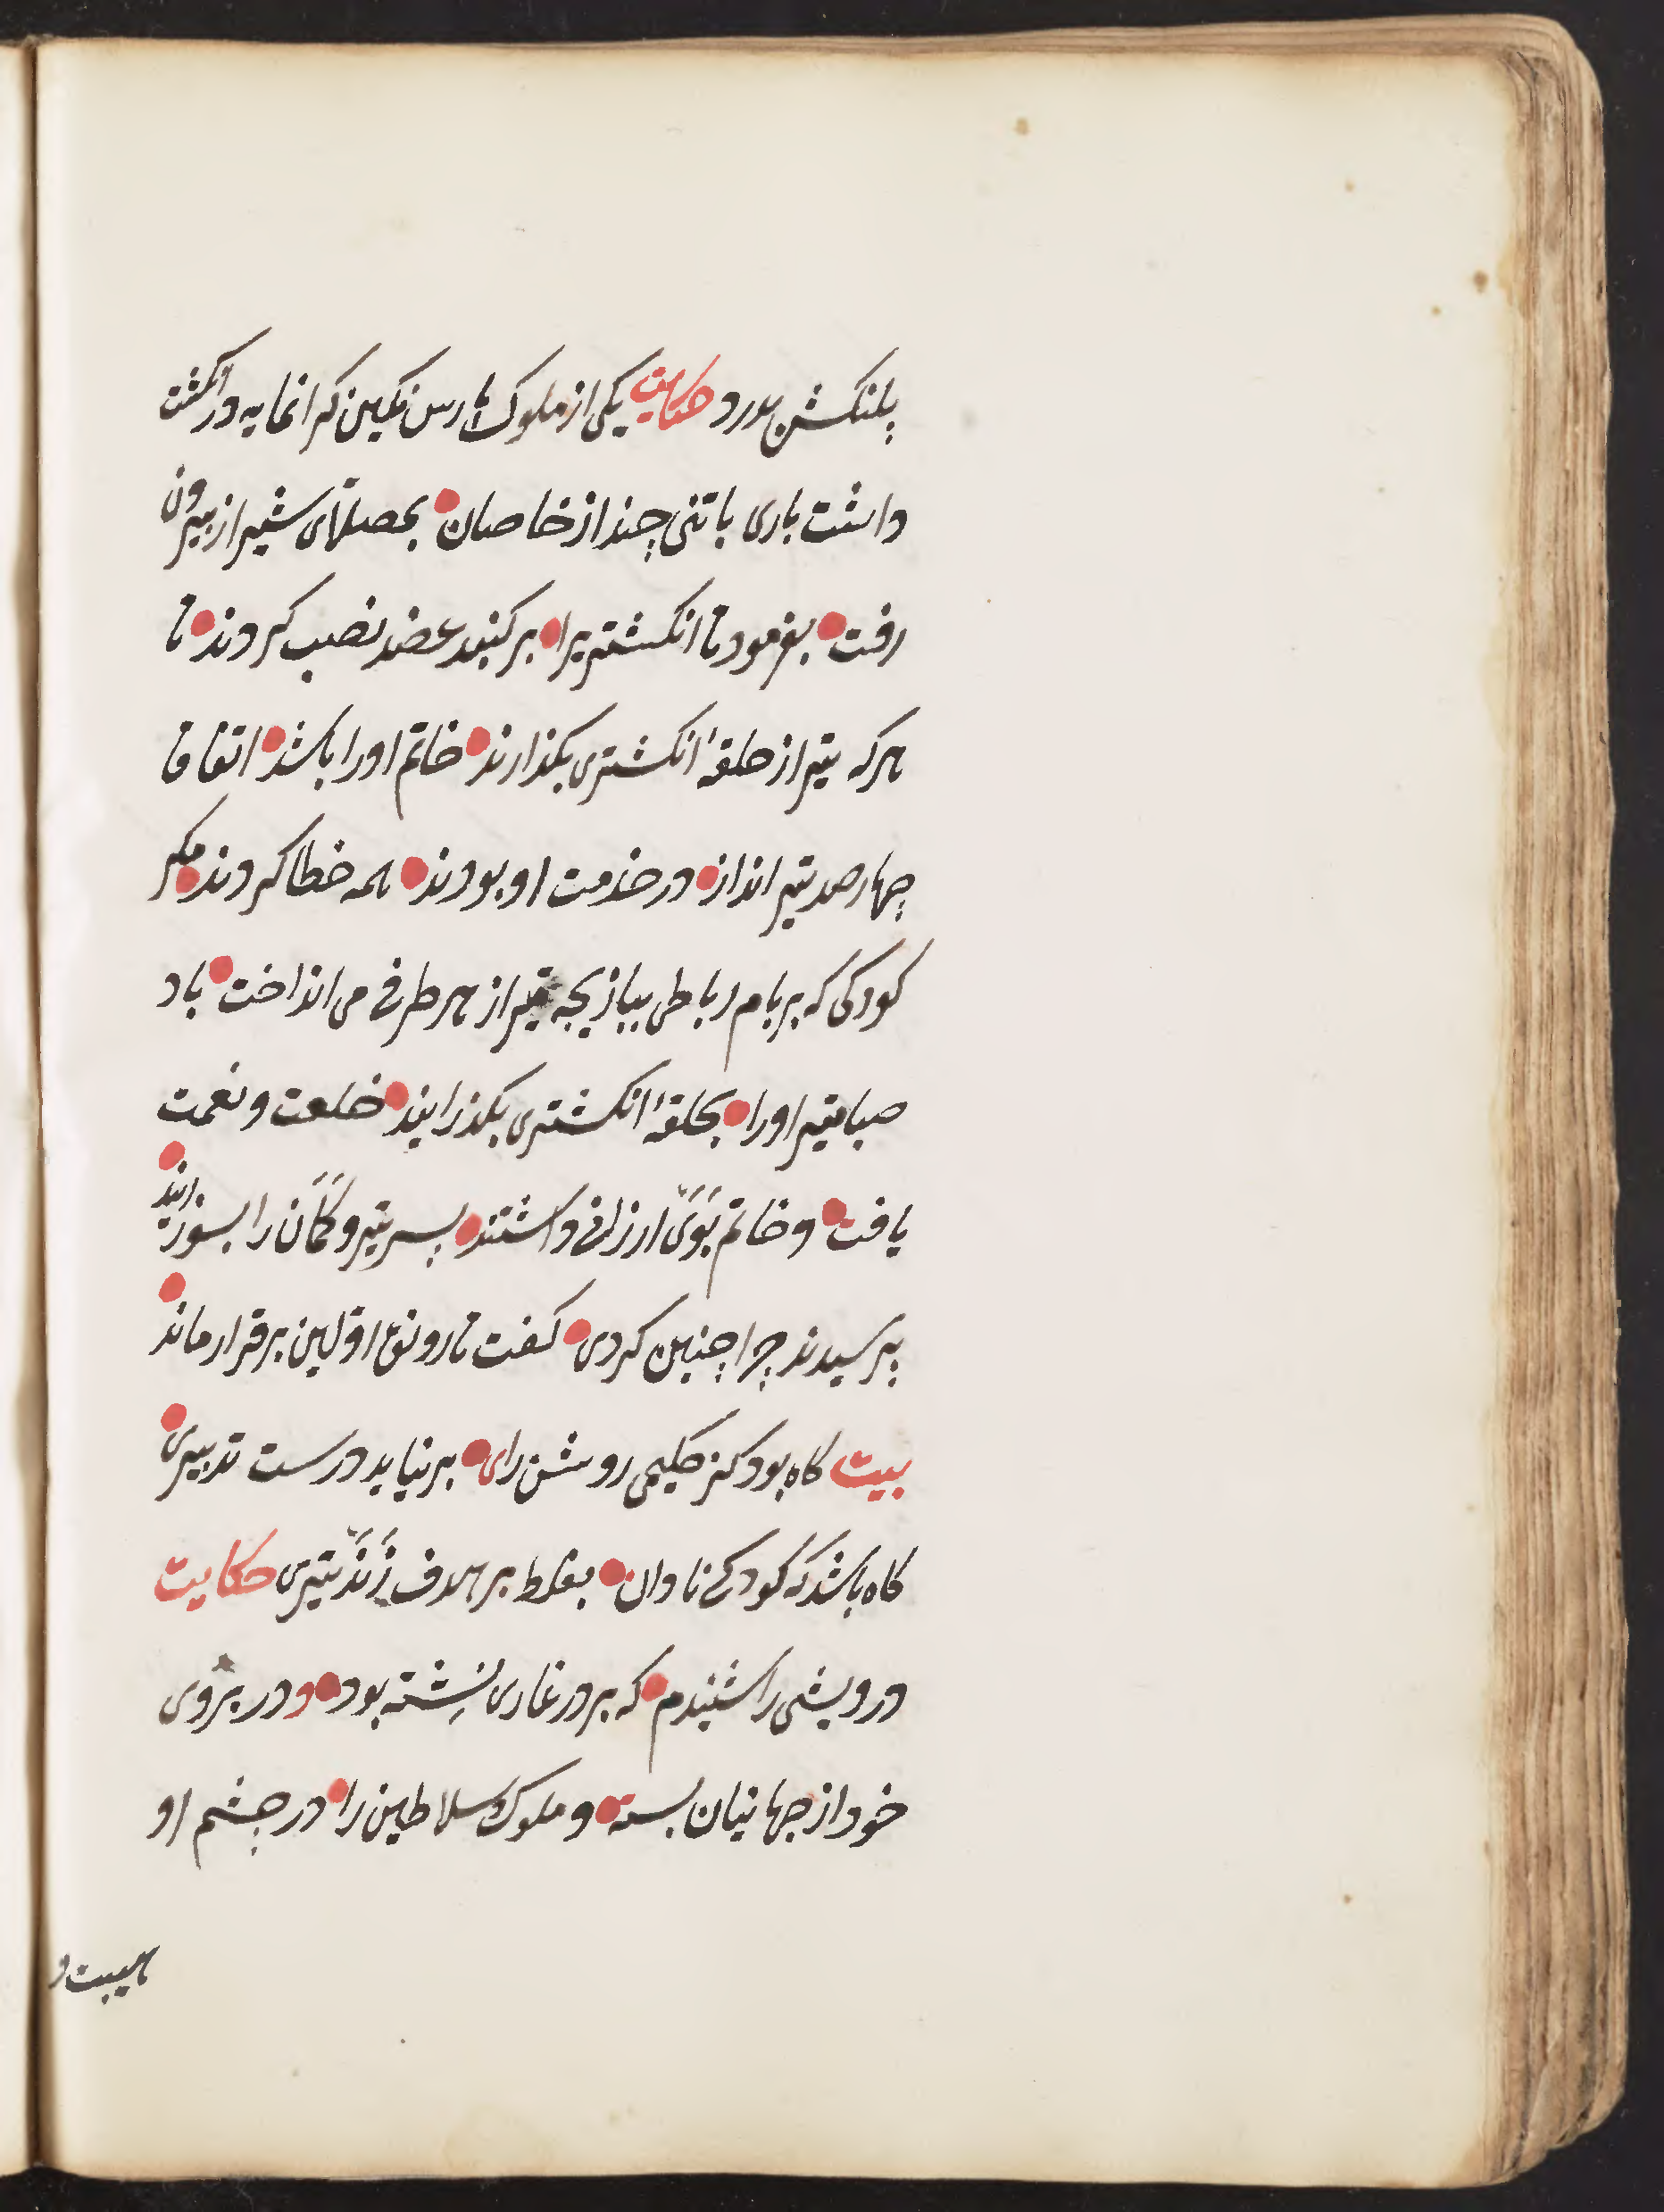 پلنکش بدرد حکایت یکی از ملوک پارس نکین کرانمایه در انکشت
داشت باری با تنی چند از خاصان بمصلای شیراز بیرون
رفت بفرمود تا انکشتریرا بر کنبد عضد نصب کردند تا
هر که تیر از حلقهٔ انکشتری بکذارند خاتم او را باشد اتفاقا
چهارصد تیر انداز در خدمت او بودند همه خطا کردند مکر
کودکی که بر بام رباطی ببازیچه تیر از هر طرفی می انداخت باد
صبا تیر او را بحلقهٔ انکشتری بکذرانید خلعت و نعمت
یافت و خاتم بَوَیّ ارزانی داشتند پسر تیر و کَمَان را بسوزانید
پرسیدند چرا چنین کردی کفت تا رونق اوّلین برقرار ماند
بیت کاه بود کز حکیمی روشن رای بر نیاید درست تدبیری
کاه باشد که کودکی نادان بغلط بر هدف زَنَدْ تیری حکایت
درویشی را شنیدم که بر در غاری نِشسته بود و در بر وی
خود از جهانیان بسته و ملوک و سلاطین را در چشم او
هیبت و